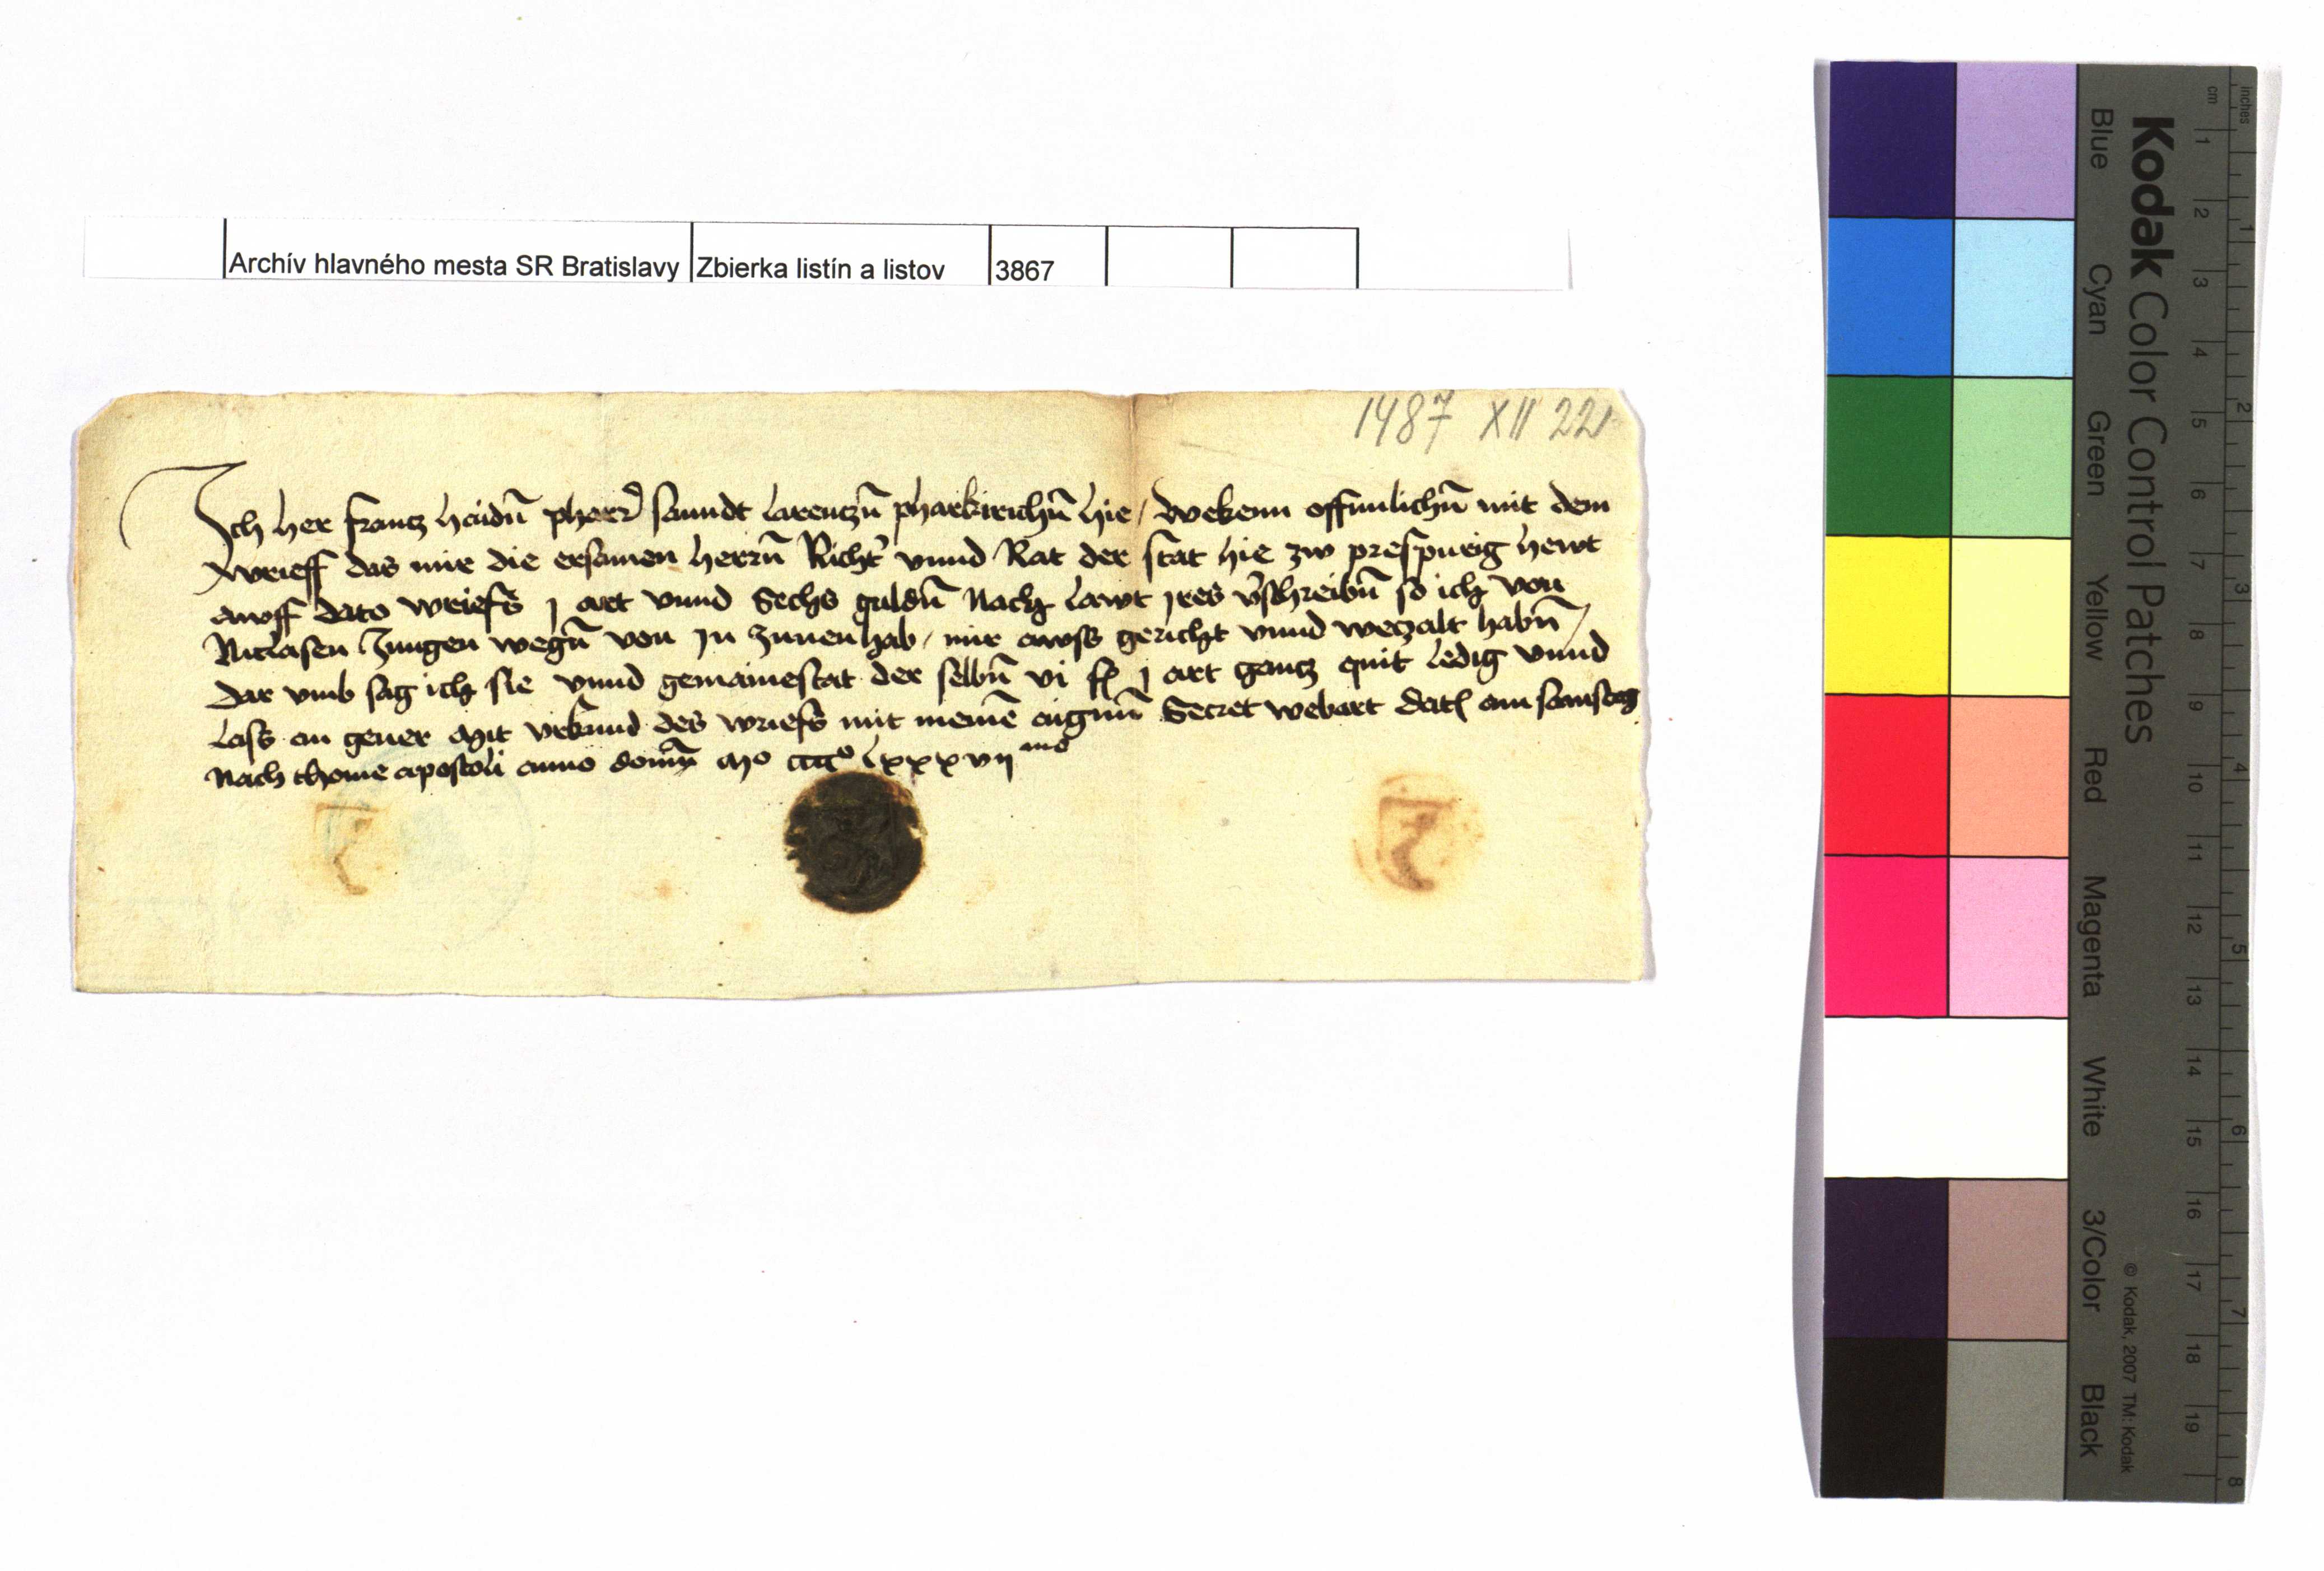 Archív hlavného mesta SR Bratislavy Zbierka listín a listov 3867
1487 XII 22
Ich her Frantz haidn̄ pharr̄ sanndt larentzn̄ pharkirichn̄ hie / wekenn offennlichn̄ mit dem
wrieff das mir die ersamen herrn̄ Richt̄ vnnd Rat der stat hie zw prespurig hewt
awff dato wriefs j ort vnnd Sechs guldn̄ Nach lawt jres v̄schreibn̄ so ich von
Niclasen Jungen wegn̄ von jn Jnnen hab / mir awss gericht vnnd wetzalt habn̄ /
Dar vmb sag ich sie vnnd gemaine stat der selbn̄ vi fl j ort gantz quit ledig vnnd
lass an gener Mit vrkund des wriefs mit meinē aignn̄ Secret webart datl am samstag
Nach thome apostoli anno domīn Mo cccco lxxxvii mo
Kodak Color Control Patches
Blue Cyan Green Yellow Red Magenta White 3/Color Black
© Kodak, 2007 TM: Kodak
cm 1 2 3 4 5 6 7 8 9 10 11 12 13 14 15 16 17 18 19
inches 1 2 3 4 5 6 7 8